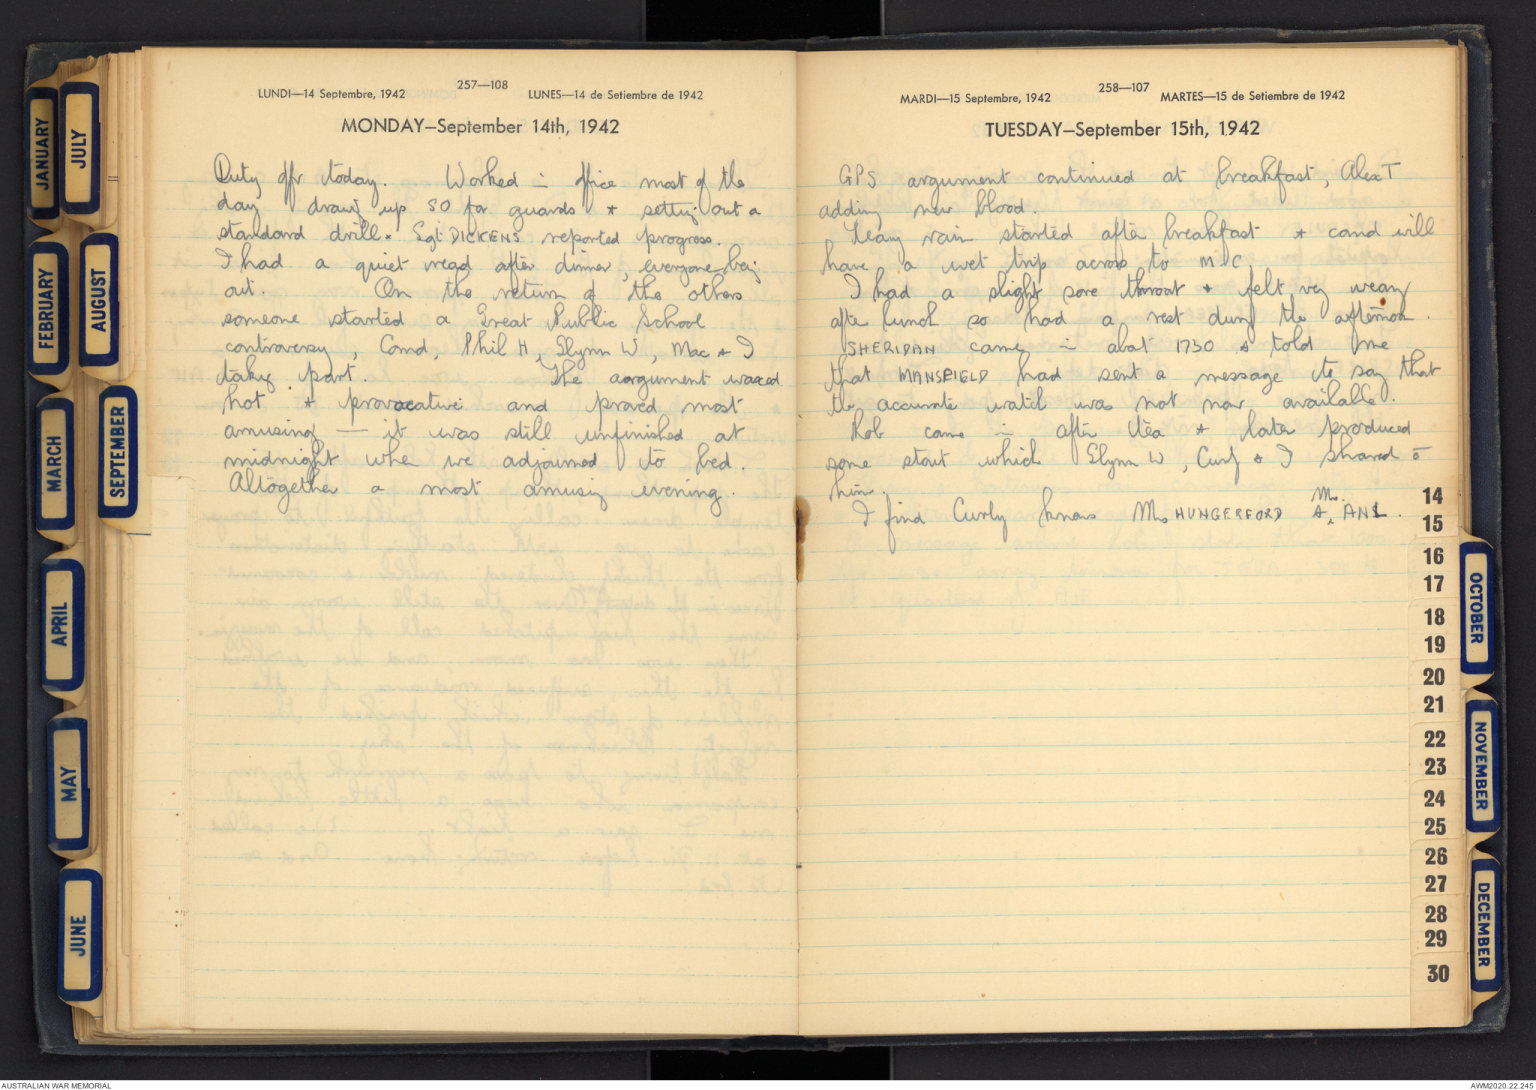 257—108
LUNDI—14 Septembre, 1942 LUNES—14 de Setiembre de 1942
MONDAY—September 14th, 1942
Duty offr today. Worked in office most of the
day drawg up SO for guards + settig out a
standard drill. Sgt DICKENS reported progress.
I had a quiet read after dinner, everyone beig
out. On the return of the others
someone started a Great Public School
controversy, Comd, Phil H, Glynn W, Mac & I
takig part The aargument waxed
hot + provocative and proved most
amusing — it was still unfinished at
midnight when we adjourned to bed.
Altogether a most amusig evening.
258—107
MARDI—15 Septembre, 1942 MARTES—15 de Setiembre de 1942
TUESDAY—September 15th, 1942
GPS argument continued at breakfast, Alex T
adding new blood.
Heavy rain started after breakfast + comd will
have a wet trip across to
I had a slight sore throat + felt very weary
after lunch so had a rest durig the afternoon.
SHERIDAN came in about 1730 & told me
that MANSFIELD had sent a message to say that
the accurate watch was not now available.
Rob came in after tea + later produced
some stout which Glynn W, Curly & I shared c̄
him.
I find Curly knows Mrs HUNGERFORD Mrs. A, ANL.
JANUARY
FEBRUARY
MARCH
APRIL
MAY
JUNE
JULY
AUGUST
SEPTEMBER
OCTOBER
NOVEMBER
DECEMBER
14
15
16
17
18
19
20
21
22
23
24
25
26
27
28
29
30
AUSTRALIAN WAR MEMORIAL
AWM2020.22.245